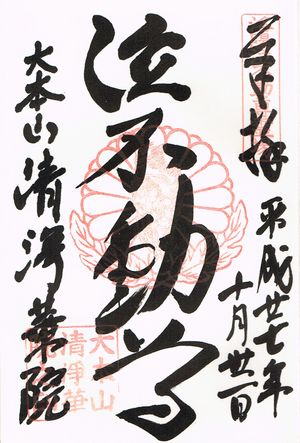 奉拝
平成廿七年
十月廿一日
泣不動尊
大本山清浄華院
大本山
清浄華
院